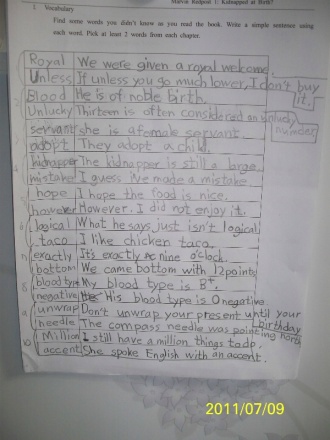 Marvin Redpost 1: Kidnapped at Birth?
1 Vocabulary
Find some words you didn't know as you read the book. Write a simple sentence using
each word. Pick at least 2 words from each chapter.
Royal We were given a royal welcome.
Unless If unless you go much lower, I don't buy it.
2 Blood He is of noble birth.
Unlucky Thirteen is often considered an unlucky number
servant she is a female servant
adopt They adopt a child.
kidnapper The kidnapper is still a large.
mistake I guess We made a mistake
hope I hope the food is nice.
however However, I did not enjoy it.
logical What he says just isn't logical
taco I like chicken taco.
exactly It's exactly nine o'clock.
bottom We came bottom with 12points
8 blood type My blood type is B+.
negative His blood type is O negative.
9 unwrap Don't unwrap your present until your birthday
needle The compass needle was pointing north
10 Million I still have a million things to do.
accent She spoke English with an accent.
2011/07/09